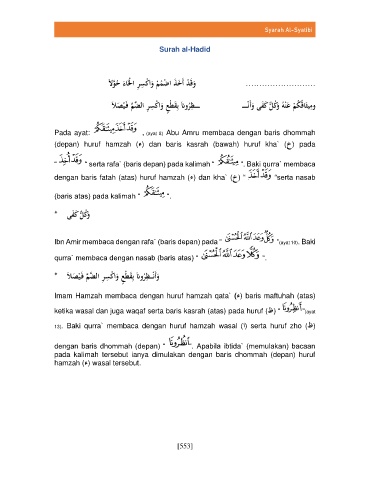 Syarah Al-Syatibi
Surah al-Hadid
وَقَدْ أَخَذَ اضْمُمْ وَاكْسِرِ الْخَاءَ حُوَّلَا ...........................
وَمِيثَاقُكُمْ عَنْهُ وَكُلٌّ كَفَى وَأَنْـ ـظِرُونَا بِقَطْعٍ وَاكْسِرِ الضَّمَّ فَيْصَلَا
Pada ayat: وَقَدْ أَخَذَ مِيثَٰقَكُمْ , (ayat 8) Abu Amru membaca dengan baris dhommah
(depan) huruf hamzah (ء) dan baris kasrah (bawah) huruf kha` (خ) pada
“ وَقَدْ أُخِذَ ” serta rafa` (baris depan) pada kalimah “ مِيثَٰقُكُمْ ”. Baki qurra` membaca
dengan baris fatah (atas) pada huruf hamzah (ء) dan kha` (خ) “ وَقَدْ أَخَذَ ”serta nasab
(baris atas) pada kalimah “ مِيثَٰقَكُمْ ”.
* وَكُلٌّ كَفَى
Ibn Amir membaca dengan rafa` (baris depan) pada “ وَكُلٌّ وَعَدَ ٱللَّهُ ٱلْحُسْنَىٰ ”(ayat 10). Baki
qurra` membaca dengan nasab (baris atas) “ وَكُلًّا وَعَدَ ٱللَّهُ ٱلْحُسْنَىٰ ”.
* وَأَنْـظِرُونَا بِقَطْعٍ وَاكْسِرِ الضَّمَّ فَيْصَلَا
Imam Hamzah membaca dengan huruf hamzah qata` (ء) baris maftuhah (atas)
ketika wasal dan juga waqaf serta baris kasrah (atas) pada huruf (ظ) “ أَنظِرُونَا ”(ayat
13). Baki qurra` membaca dengan huruf hamzah wasal (ا) serta huruf zho (ظ)
dengan baris dhommah (depan) “ ٱنظُرُونَا ”. Apabila ibtida` (memulakan) bacaan
pada kalimah tersebut ianya dimulakan dengan baris dhommah (depan) huruf
hamzah (ء) wasal tersebut.
[553]